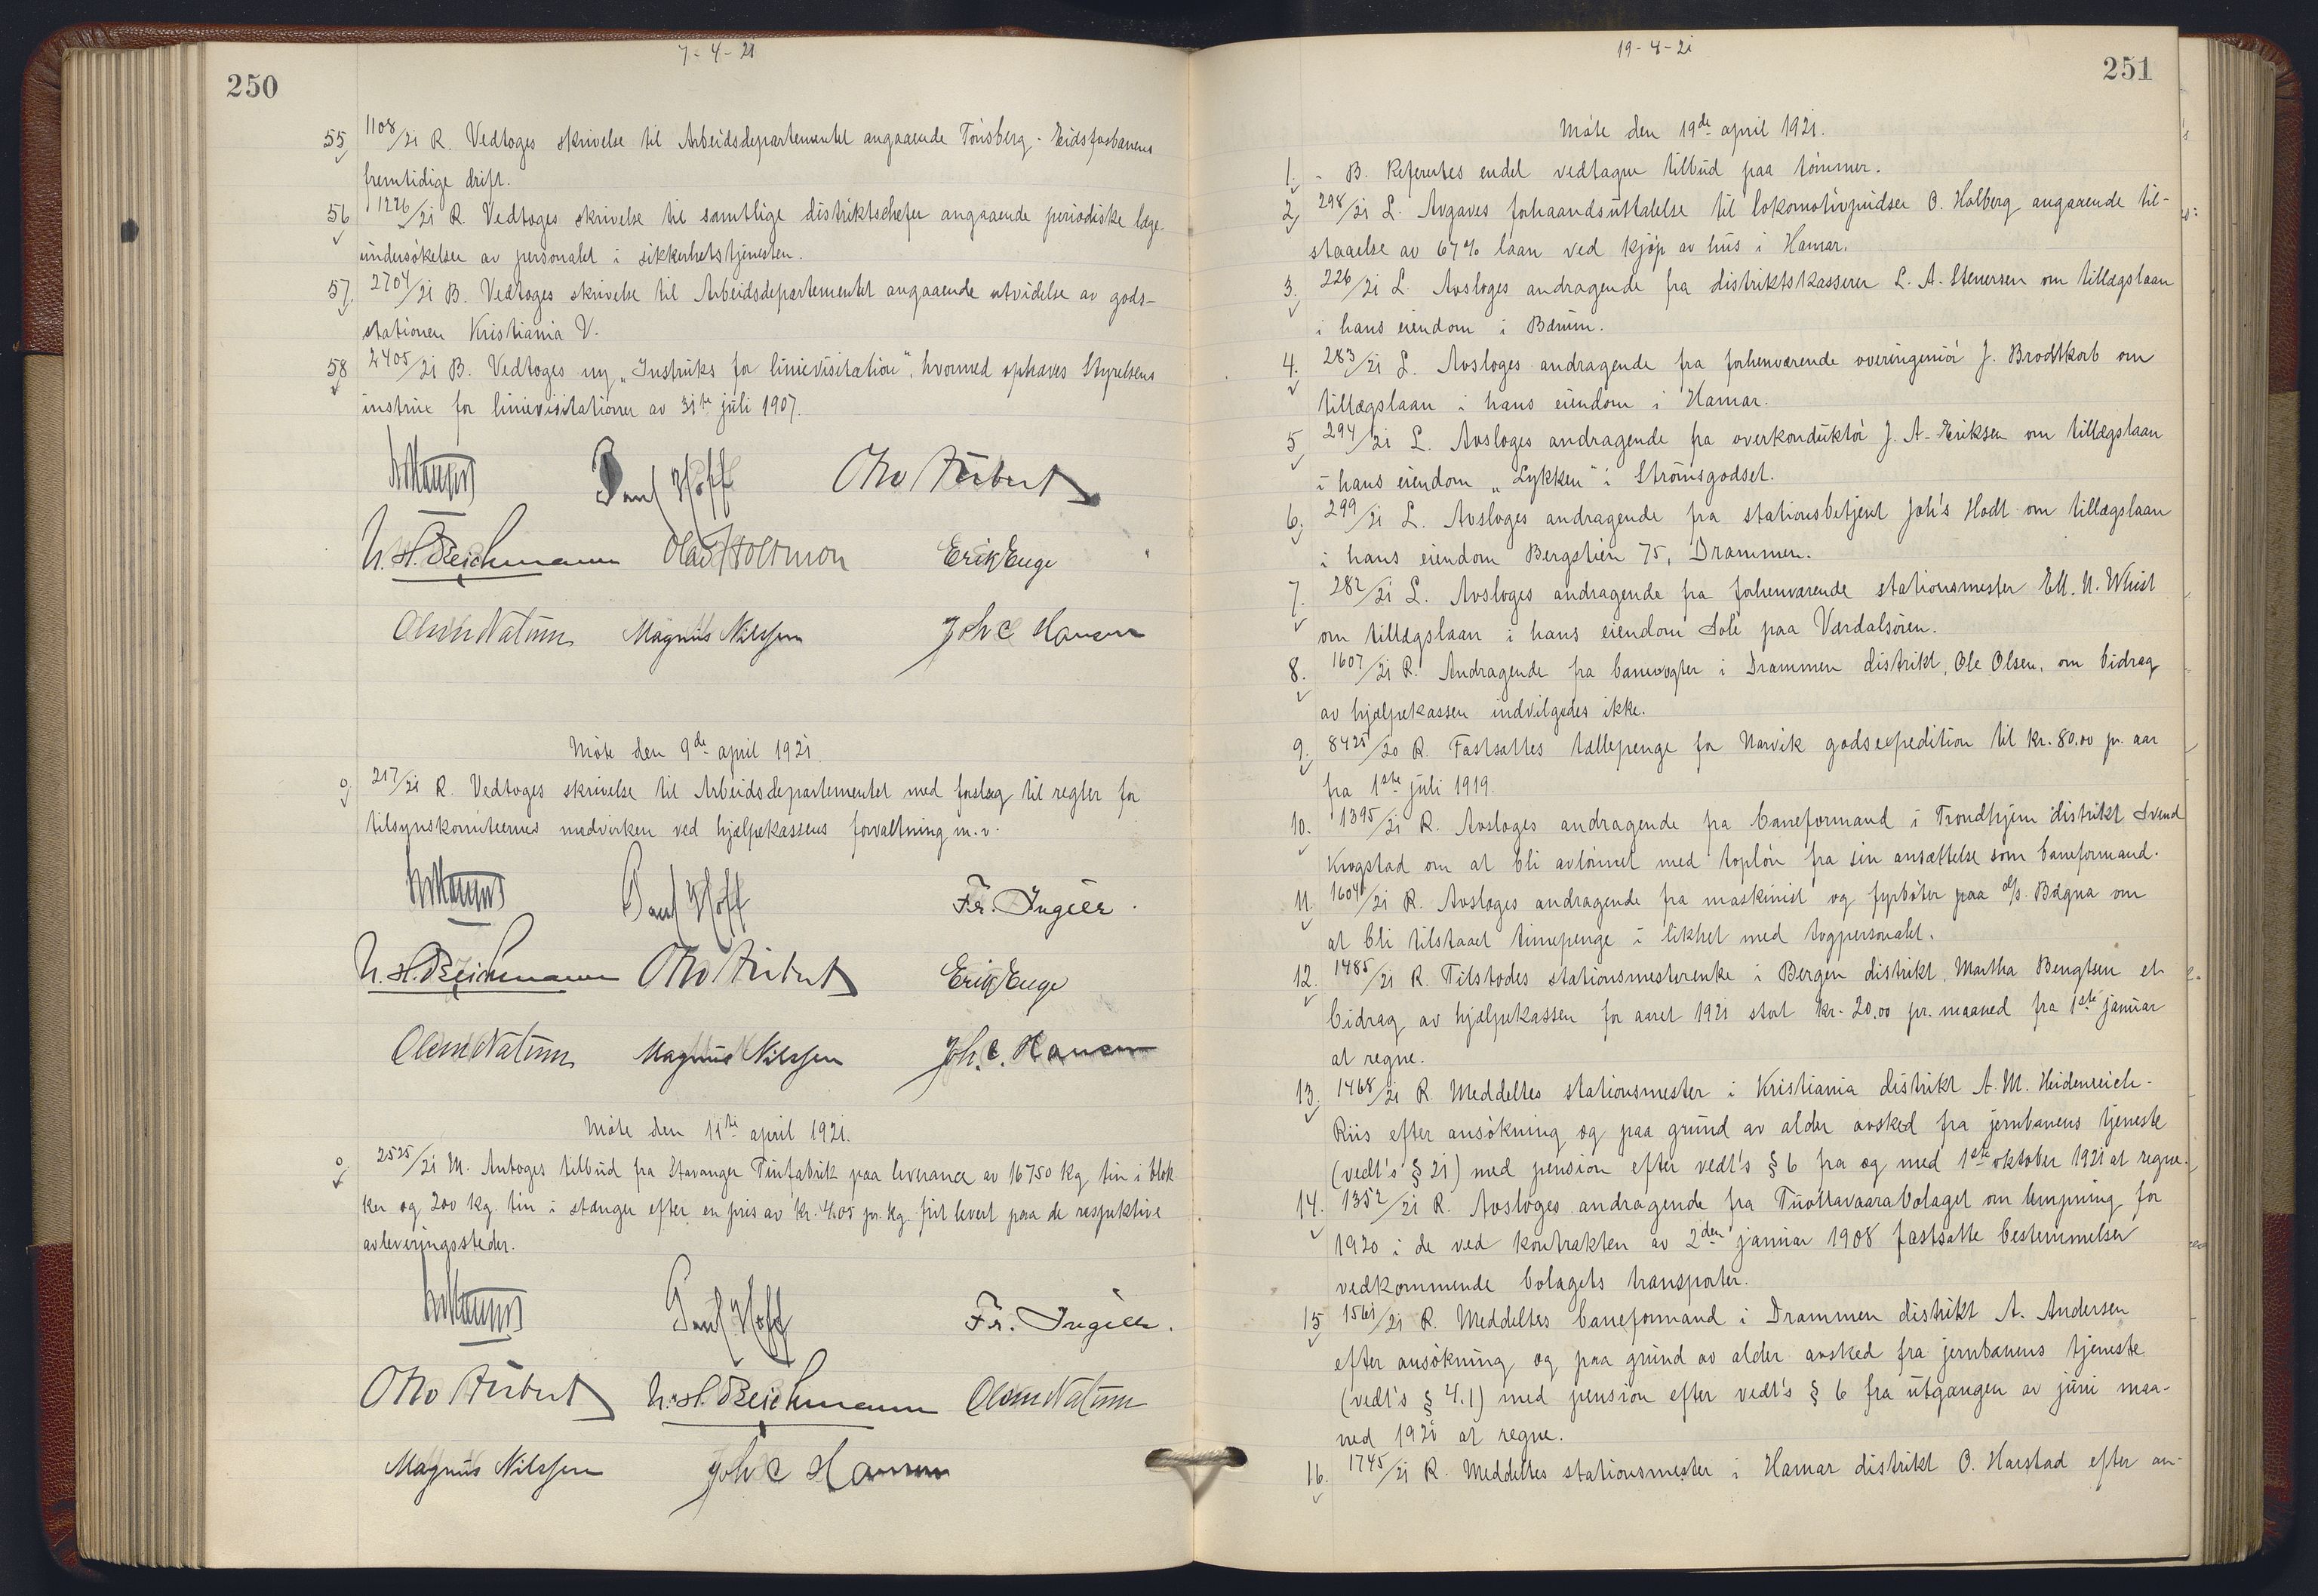 7-4-21
250
55, 1108/21 R. Vedtoges skrivelse til Arbeidsdepartementet angaaende Tønsberg-Eidsfosbanens
fremtidige drift.
56 1226/21 R. Vedtoges skrivelse til samtlige distriktschefer angaaende periodiske læge-
undersøkelser av personalet i sikkerhetstjenesten.
57, 2704/21 B. Vedtoges skrivelse til Arbeidsdepartementet angaaende utvidelse av gods-
stationen Kristiania V.
58 2405/21 B. Vedtoges ny „Instruks for linievisitation“, hvormed ophæves Styrelsens
instrux for linievisitationer av 31te juli 1907.
Paul Hoff Otto Aubert
Olaf Holtmon Erik Enge
Magnus Nilssen Joh C Hansen
Møte den 9de april 1921.
217/21 R. Vedtoges skrivelse til Arbeidsdepartementet med forslag til regler for
tilsynskomiteernes medvirken ved hjælpekassens forvaltning m.v.
Paul Hoff Fr. Ingier.
Otto Aubert Erik Enge
Magnus Nilssen Joh. C. Hansen
Møte den 11te april 1921.
2525/21 M. Antoges tilbud fra Stavanger Tinfabrik paa leverance av 16750 kg tin i blok-
ker og 200 kg. tin i stænger efter en pris av kr. 4.05 pr. kg. frit levert paa de respektive
avleveringssteder.
Paul Hoff Fr. Ingier.
Otto Aubert
Magnus Nilssen Joh C Hansen
19-4-21
251
Møte den 19de april 1921.
1. - B. Refereertes endel vedtagne tilbud paa tømmer.
2, 298/21 L. Avgaves forhaandsuttalelse til lokomotivpudser O. Holberg angaaende til-
staaelse av 67% laan ved kjøp av hus i Hamar.
3. 226/21 L. Avsloges andragende fra distriktskasserer L. A. Stenersen om tillægslaan
i hans eiendom i Bærum.
4. 283/21 L. Avsloges andragende fra forhenværende overingeniør J. Brodtkorb om
tillægslaan i hans eiendom i Hamar.
5, 294/21 L. Avsloges andragende fra overkonduktør J. A. Eriksen om tillægslaan
i hans eiendom „Lykken“ i Strømsgodset.
6, 299/21 L. Avsloges andragende fra stationsbetjent Joh's Hodt om tillægslaan
i hans eiendom Bergstien 75, Drammen.
7. 282/21 L. Avsloges andragende fra forhenværende stationsmester Ell. N. Whist
om tillægslaan i hans eiendom Sole paa Værdalsøren.
8. 1607/21 R. Andragende fra banevogter i Drammen distrikt, Ole Olsen, om bidrag
av hjælpekassen indvilgedes ikke.
9. 8425/20 R. Fastsattes tællepenge for Narvik godsexpedition til kr. 80.00 pr. aar
fra 1ste juli 1919.
10. 1395/21 R. Avsloges andragende fra baneformand i Trondhjem distrikt Svend
Krogstad om at bli avlønnet med topløn fra sin ansættelse som baneformand.
11. 1604/21 R. Avsloges andragende fra maskinist og fyrbøter paa d/s. Bægna om
at bli tilstaaet timepenge i likhet med togpersonalet.
12. 1485/21 R. Tilstodes stationsmesterenke i Bergen distrikt, Martha Bengtsen et
bidrag av hjælpekassen for aaret 1921 stort kr. 20.00 pr. maaned fra 1ste januar
at regne.
13, 1468/21 R. Meddeltes stationsmester i Kristiania distrikt A. M. Heidenreich-
Riis efter ansøkning og paa grund av alder avsked fra jernbanens tjeneste
(vedt's § 21) med pension efter vedt's § 6 fra og med 1ste oktober 1921 at regne.
14. 1352/21 R. Avsloges andragende fra Tuollavaarabolaget om lempning for
1920 i de ved kontrakten av 2den januar 1908 fastsatte bestemmelser
vedkommende bolagets transporter.
15, 1561/21 R. Meddeltes baneformand i Drammen distrikt A. Andersen
efter ansøkning og paa grund av alder avsked fra jernbanens tjeneste
(vedt's § 4.1) med pension efter vedt's § 6 fra utgangen av juni maa-
ned 1921 at regne.
16. 1745/21 R. Meddeltes stationsmester i Hamar distrikt O. Harstad efter an-